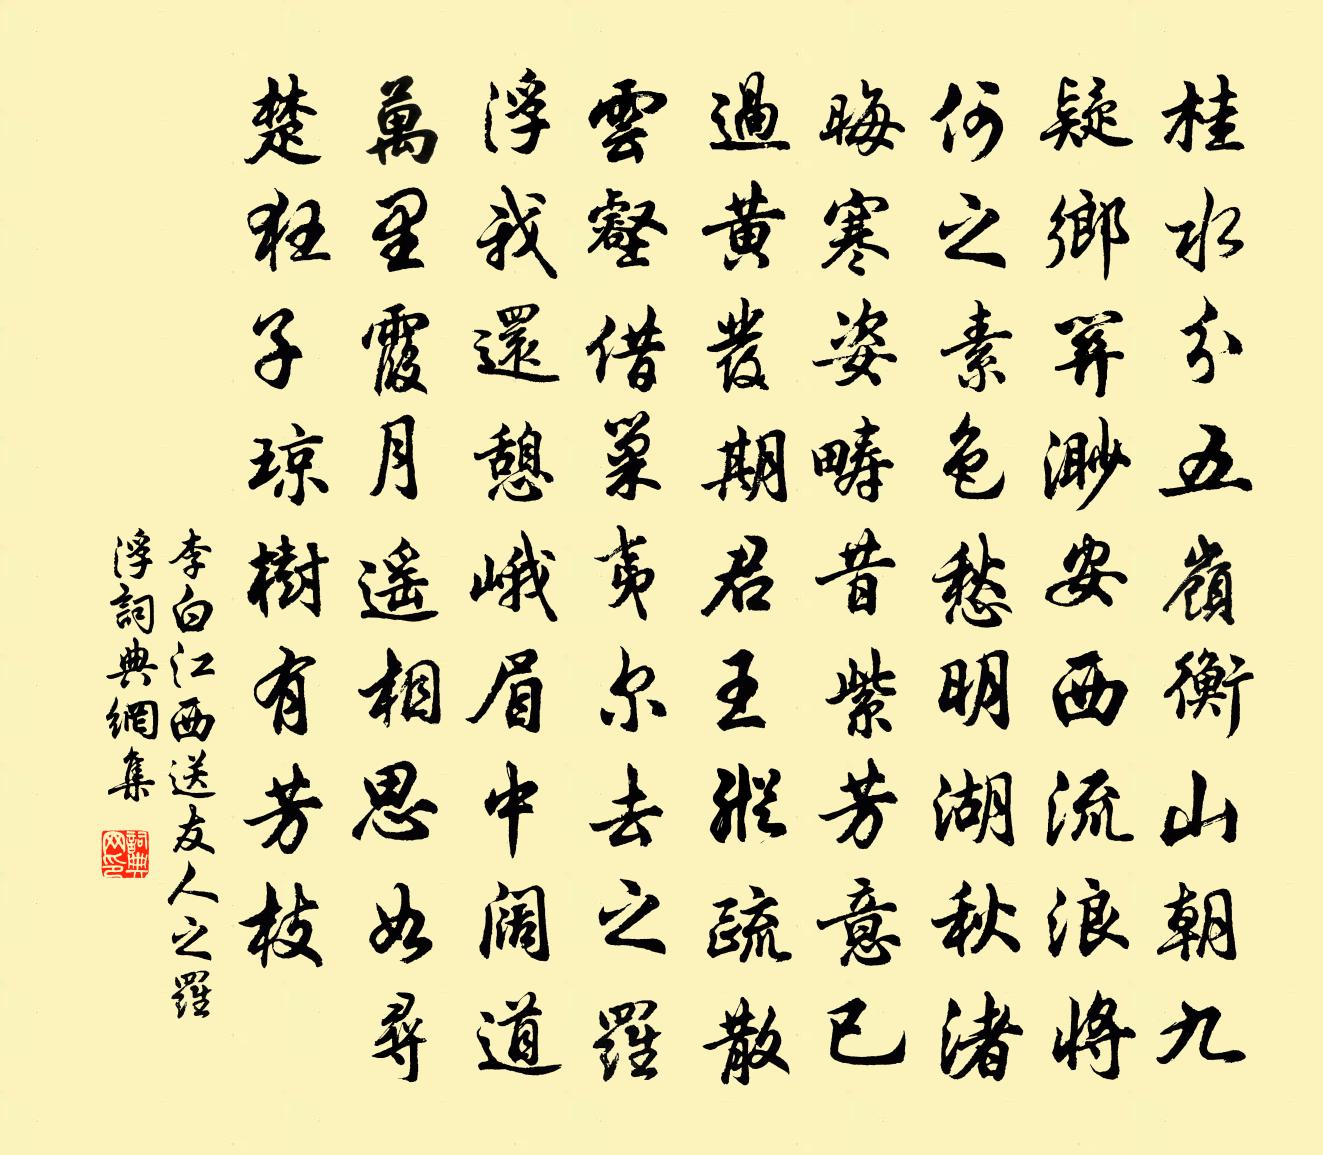 桂水分五嶺衡山朝九
疑鄉關渺安西流浪將
何之素色愁明湖秋渚
晦寒姿疇昔紫芳意已
過黃發期君王縱疏散
雲壑借巢夷尔去之羅
浮我還憩峨眉中闊道
萬里霞月遥相思如尋
楚狂子琼樹有芳枝
李白江西送友人之羅
浮詞典網集
詞典網印